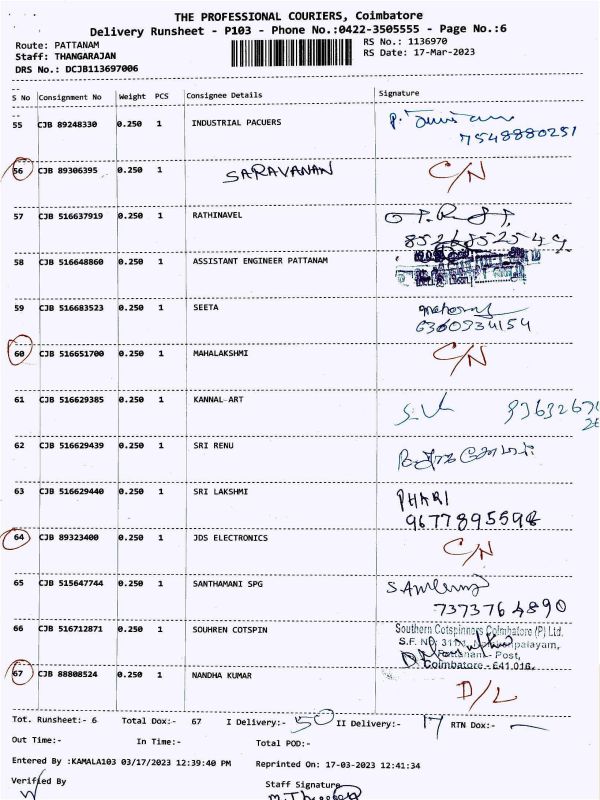 THE PROFESSIONAL COURIERS, Coimbatore
Delivery Runsheet - P103 - Phone No.:0422-3505555 - Page No.:6
Route: PATTANAM
RS No.: 1136970
Staff: THANGARAJAN
RS Date: 17-Mar-2023
DRS No.: DCJB113697006
S No Consignment No Weight PCS Consignee Details Signature
55 CJB 89248330 0.250 1 INDUSTRIAL PACUERS
7548880251
56 CJB 89306395 0.250 1 SARAVANAN C/N
57 CJB 516637919 0.250 1 RATHINAVEL
8526852549
58 CJB 516648860 0.250 1 ASSISTANT ENGINEER PATTANAM
59 CJB 516683523 0.250 1 SEETA
6360934154
60 CJB 516651700 0.250 1 MAHALAKSHMI C/N
61 CJB 516629385 0.250 1 KANNAL-ART
62 CJB 516629439 0.250 1 SRI RENU
63 CJB 516629440 0.250 1 SRI LAKSHMI PHARI
9677895598
64 CJB 89323400 0.250 1 JDS ELECTRONICS C/N
65 CJB 515647744 0.250 1 SANTHAMANI SPG
7373764890
66 CJB 516712871 0.250 1 SOUHREN COTSPIN Southern Cotspinners Coimbatore (P) Ltd.
S.F. No:
Pattanam - Post,
Coimbatore - 641 016.
67 CJB 88808524 0.250 1 NANDHA KUMAR D/L
Tot. Runsheet:- 6 Total Dox:- 67 I Delivery:- 50 II Delivery:- 17 RTN Dox:-
Out Time:- In Time:- Total POD:-
Entered By :KAMALA103 03/17/2023 12:39:40 PM Reprinted On: 17-03-2023 12:41:34
Verified By Staff Signature